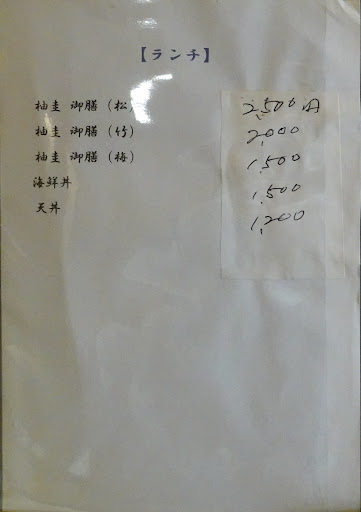 【ランチ】
柚圭 御膳（松） 2,500円
柚圭 御膳（竹） 2,000
柚圭 御膳（梅） 1,500
海鮮丼 1,500
天丼 1,200